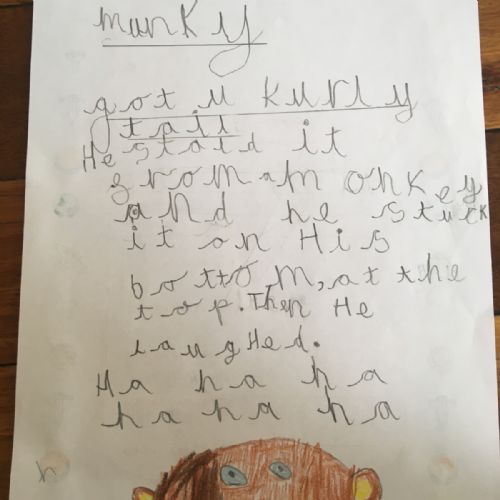 munky
got u kurly
tail
He stold it
from am onkey
and he stuck
it on His
bottom, at the
top. Then He
laugHed.
Ha ha ha
ha ha ha
h